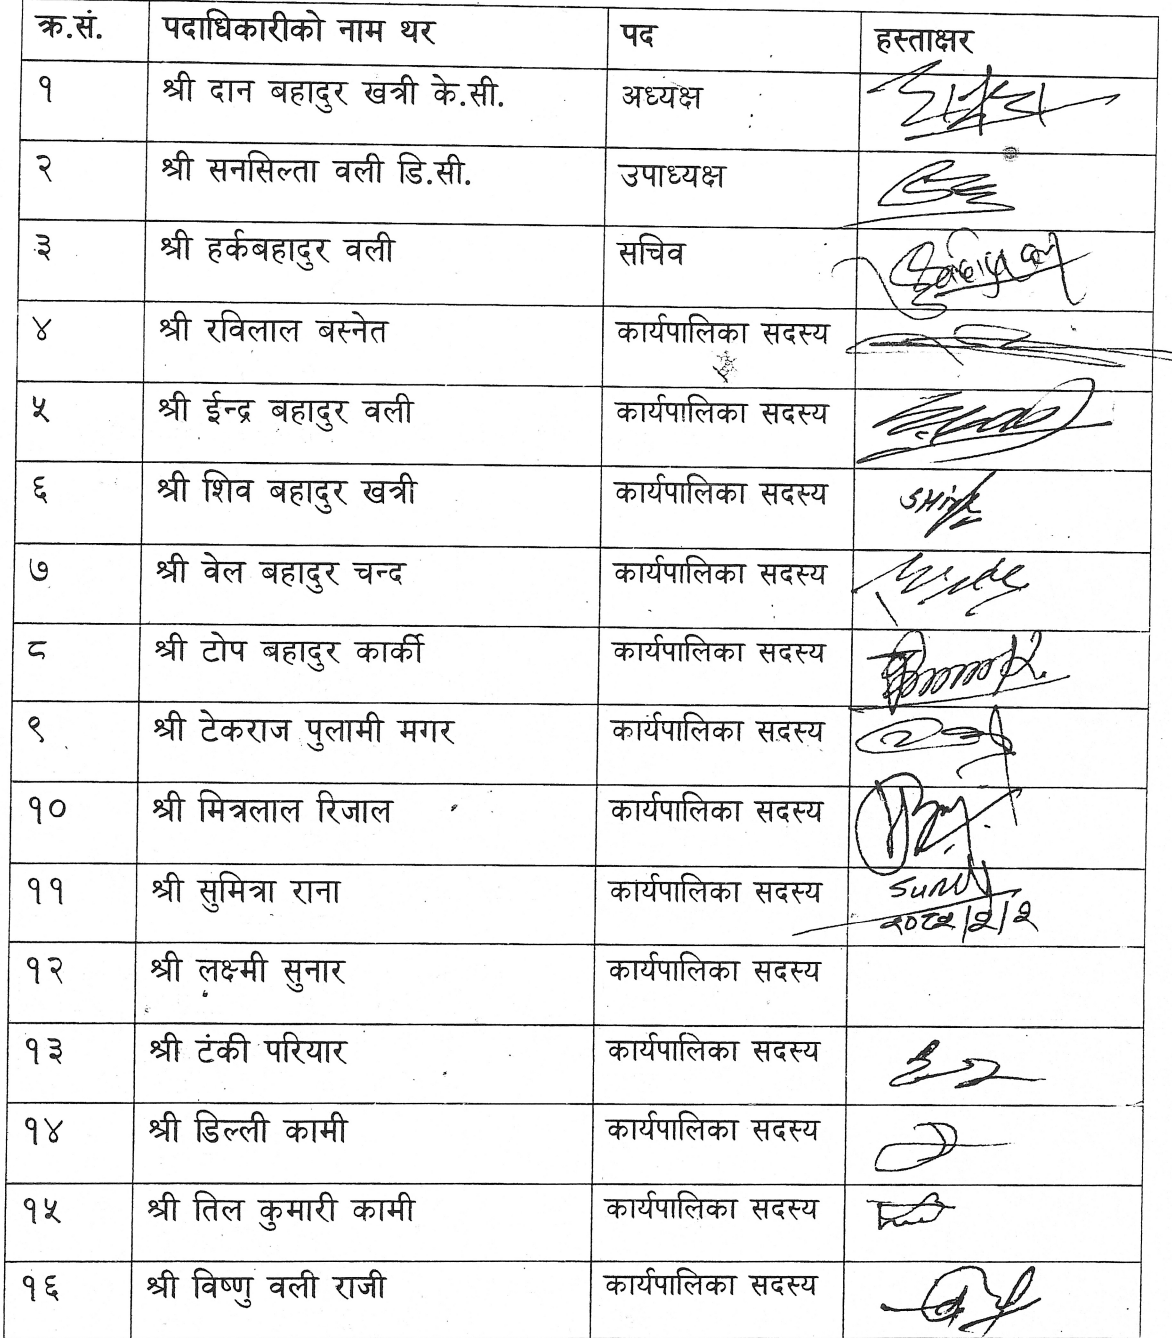 क्र.सं. पदाधिकारीको नाम थर पद हस्ताक्षर
१ श्री दान बहादुर खत्री के.सी. अध्यक्ष
२ श्री सनसिल्ता वली डि.सी. उपाध्यक्ष
३ श्री हर्कबहादुर वली सचिव
४ श्री रविलाल बस्नेत कार्यपालिका सदस्य
५ श्री ईन्द्र बहादुर वली कार्यपालिका सदस्य
६ श्री शिव बहादुर खत्री कार्यपालिका सदस्य
७ श्री वेल बहादुर चन्द कार्यपालिका सदस्य
८ श्री टोप बहादुर कार्की कार्यपालिका सदस्य
९ श्री टेकराज पुलामी मगर कार्यपालिका सदस्य
१० श्री मित्रलाल रिजाल कार्यपालिका सदस्य
११ श्री सुमित्रा राना कार्यपालिका सदस्य
२०८२/२/२
१२ श्री लक्ष्मी सुनार कार्यपालिका सदस्य
१३ श्री टंकी परियार कार्यपालिका सदस्य
१४ श्री डिल्ली कामी कार्यपालिका सदस्य
१५ श्री तिल कुमारी कामी कार्यपालिका सदस्य
१६ श्री विष्णु वली राजी कार्यपालिका सदस्य